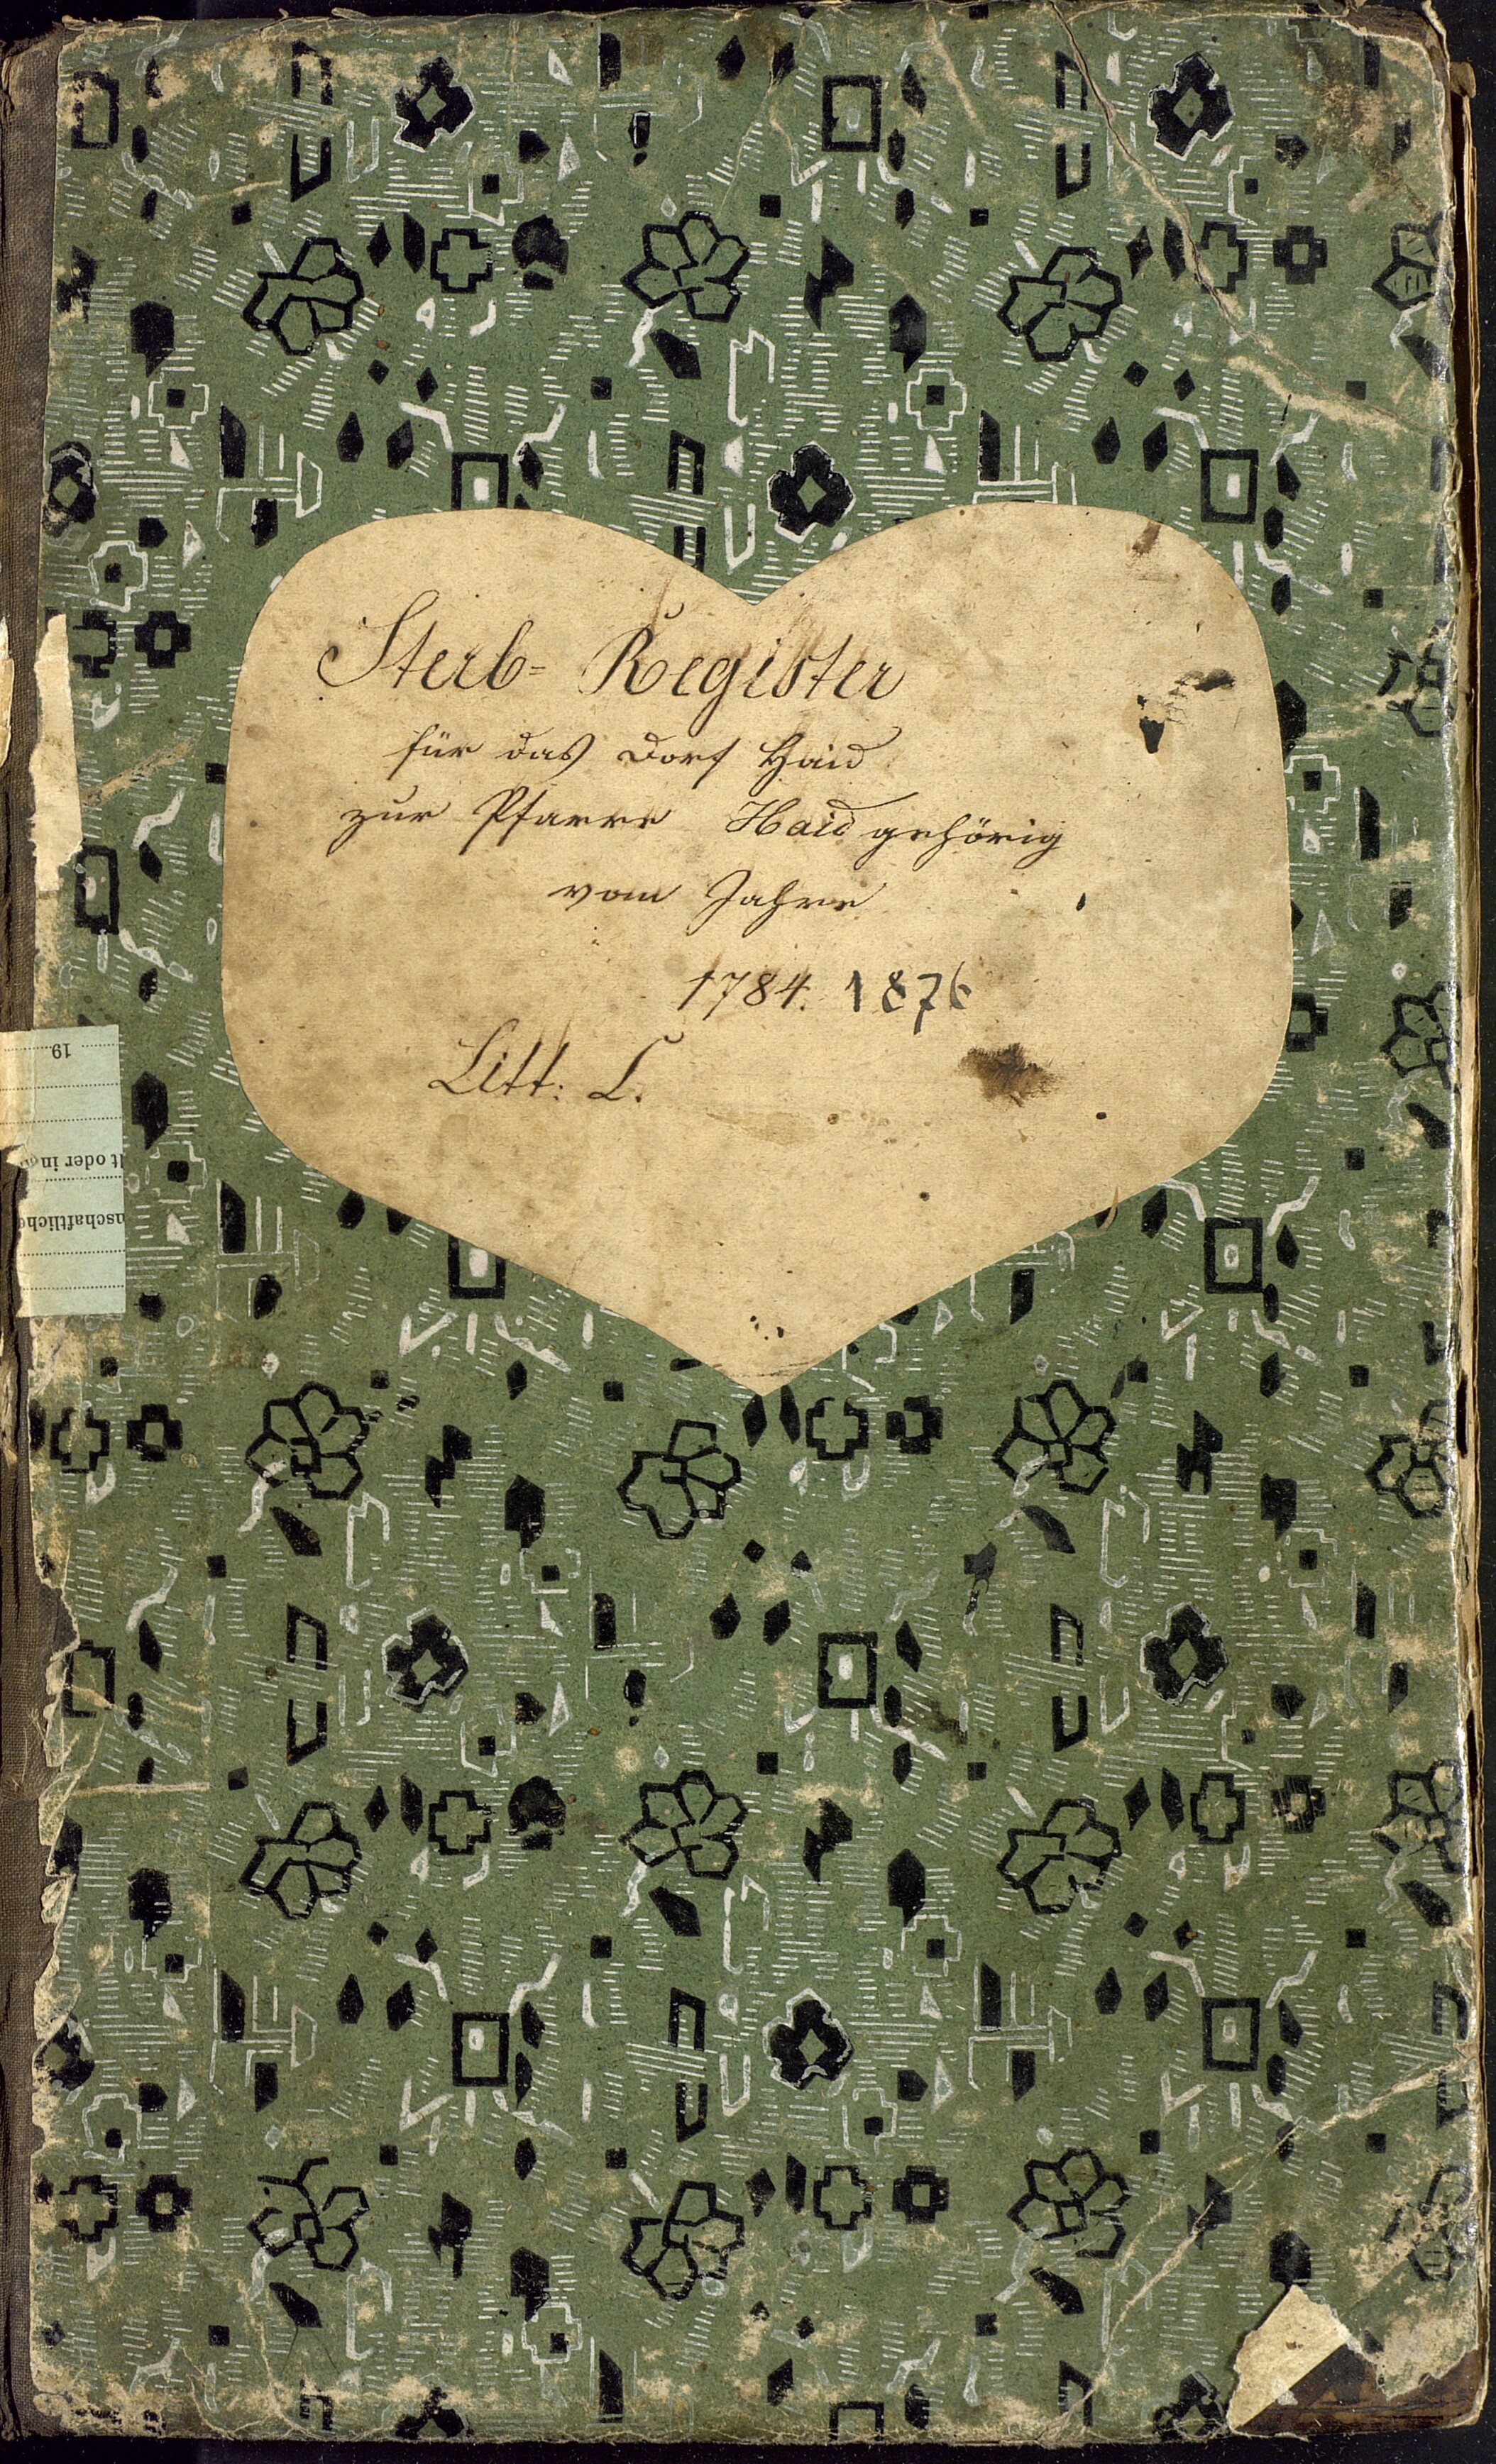 Sterb= Register
für das Dorf Haid
zur Pfarre Haid gehörig
vom Jahre
1784. 1876
Litt: L.
19
lt oder in
nschaftliche